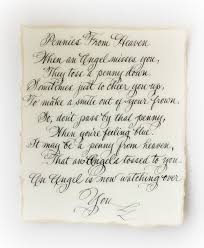 Pennies From Heaven
When an Angel misses you,
They toss a penny down.
Sometimes just to cheer you up,
To make a smile out of your frown.
So, don't pass by that penny,
When you're feeling blue.
It may be a penny from heaven,
That an Angel tossed to you.
An Angel is now watching over
You